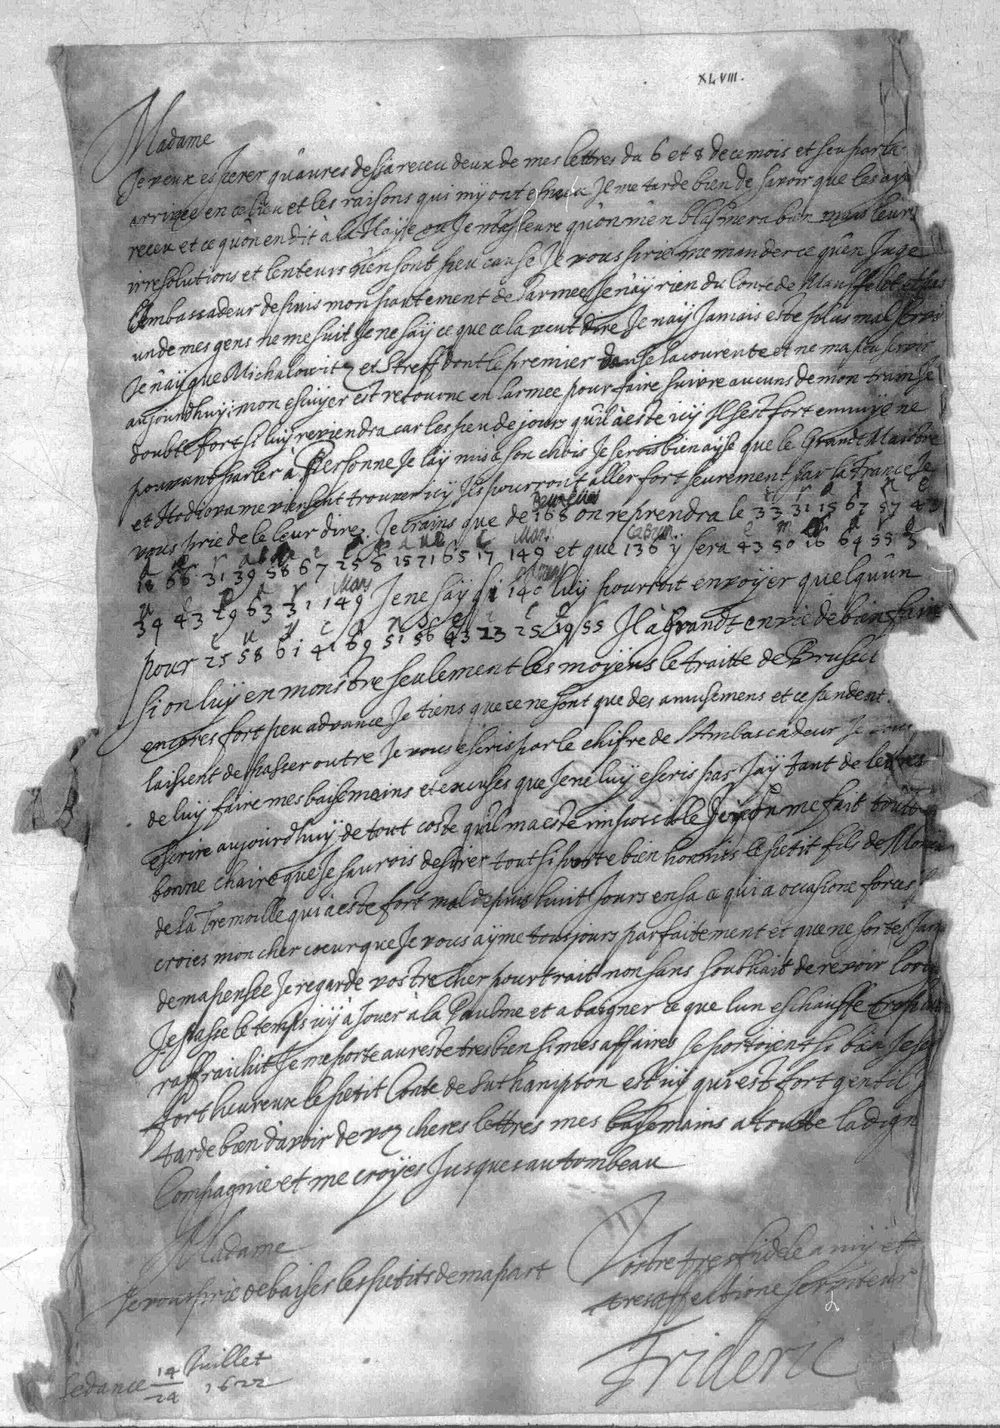 XLVIII.
Madame
Je veux esperer qu'aures desja receu deux de mes lettres du 6 et 8 de ce mois et sceu par la
arrivée en ce lieu et les raisons qui m'y ont Je me tarde bien de savoir que les aye
receu et ce qu'on en dit à la Haye ou Je m'asseure qu'on m'en blasmera bien mais leurs
irresolutions et lenteurs en sont peu cause Je vous prie me mander ce qu'en Juge
l'Ambassadeur depuis mon partement de l'armee Je n'ay rien du Conte de Mansfelt et pas
un de mes gens ne me suit Je ne say ce que cela veut dire Je n'ay Jamais esté plus mal servi
Je n'ay que Michalowitz et Streff dont le premier a la courente et ne m'a peu servir
aujourdhuy; mon escuyer est retourné en l'armee pour faire suivre aucuns de mon train Je
doubte fort s'il y reviendra car les peu de jours qu'il a esté icy Il s'est fort ennuyé ne
pouvant parler à Personne Je l'ay mis à son chois Je serois bien ayse que le Grand Maistre
et viensent trouver icy Ils pourront aller fort seurement par la France Je
vous prie de le leur dire. Je crains que de 168 on reprendra le 33 31 15 67 57 43
18 66 31 39 58 67 25 8 15 71 65 17 149 et que 136 y sera 43 50 16 64 55 3
34 43 29 63 31 149 Je ne say si 140 luy pourroit envoyer quelqu'un
pour 25 58 61 41 69 51 56 43 23 25 19 55 Il a grandt envie de bien faire
si on luy en monstre seulement les moyens le traitte de Brussel
encores fort peu advancé Je tiens que ce ne sont que des amusemens et cependent
laissent de passer outre Je vous escris par le chifre de l'Ambassadeur Je vous
de luy faire mes baysemains et excuses que Je ne luy escris pas J'ay tant de lettres
escrire aujourdhuy de tout costé qu'il m'a esté impossible Icy on me fait toute
bonne chaire que Je saurois desirer tout si porte bien hormis le petit fils de Mons
de la Tremoille qui a esté fort mal depuis huit Jours en sa ce qui a occasioné forces
croies mon cher coeur que Je vous ayme tousjours parfaitement et que ne sortes Jam
de ma pensée Je regarde vostre cher pourtrait non sans souhait de revoir l'ori
Je passe le temps icy à Jouer à la Paulme et a baigner ce que l'un eschauffe
raffraichit Je me porte au reste tres bien si mes affaires se portoient si bien Je ser
fort heureux le petit Conte de Suthampton est icy qui est fort gentil
tarde bien d'avoir de voz cheres lettres mes baysemains a toutte la dign
Compagnie et me croyes Jusques au tombeau
Madame
Je vous prie de baiser les petits de ma part
Vostre tres fidele amy et
tres affectioné serviteur
Frideric
Sedan ce 14/24 Juillet
1622